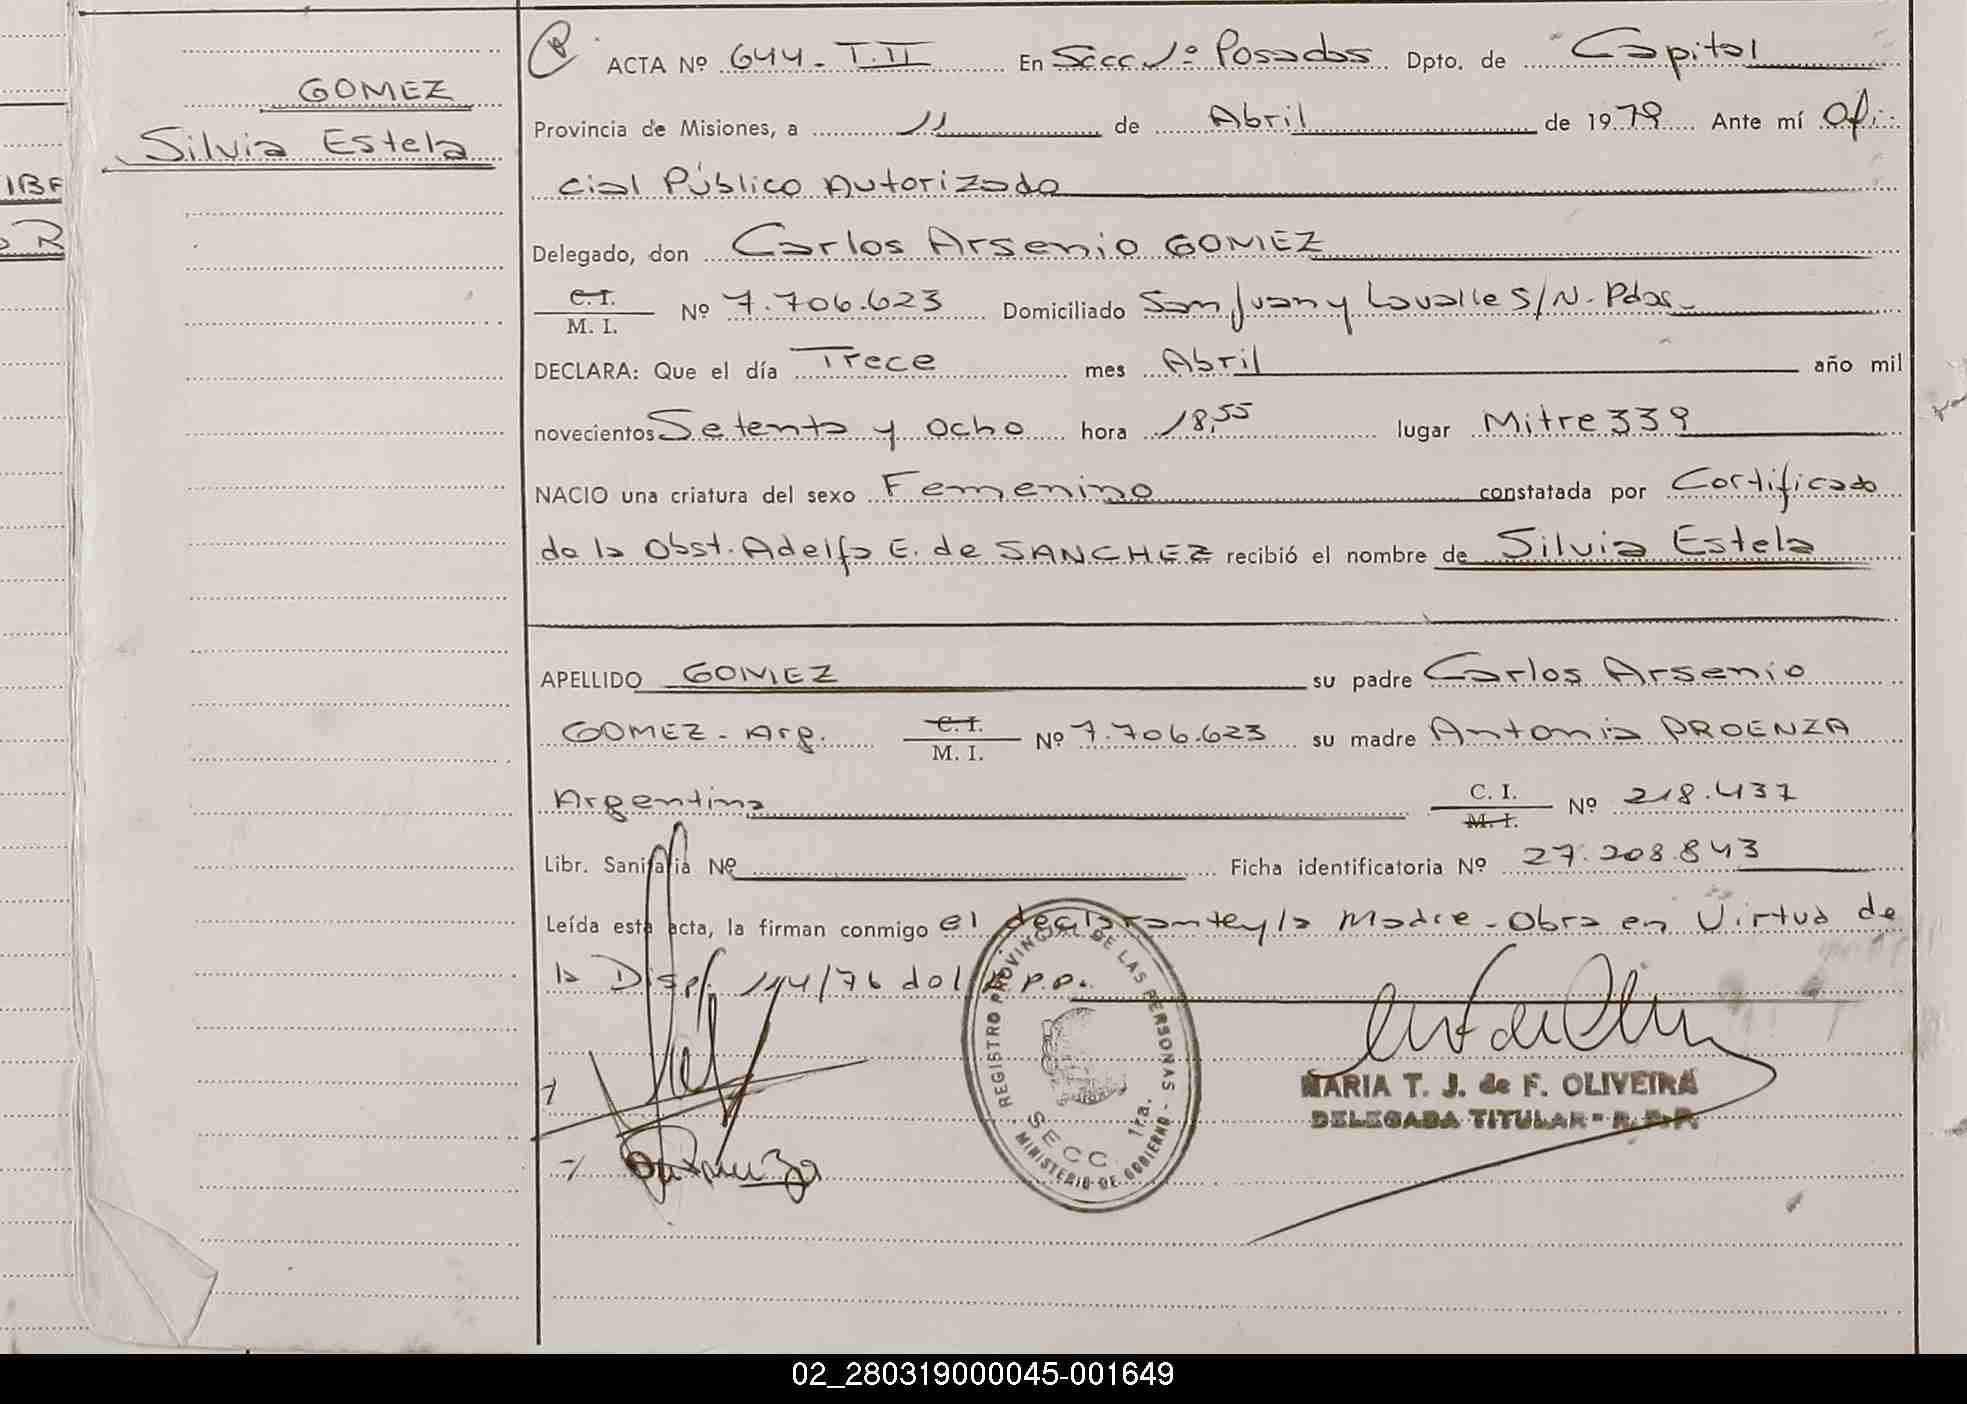 GOMEZ
Silvia Estela
IBE
R
ACTA Nº 644 - T.II En Secc 1º Posadas Dpto. de Capital
Provincia de Misiones, a 11 de Abril de 1979 Ante mí Ofi-
cial Público Autorizado
Delegado, don Carlos Arsenio GOMEZ
C.I.
M. I. Nº 7.706.623 Domiciliado San Juan y Lavalle S/N. Pdas.
DECLARA: Que el día Trece mes Abril año mil
novecientos Setenta y ocho hora 18,55 lugar Mitre 339
NACIO una criatura del sexo Femenino constatada por Certificado
de la Obst. Adelfa E. de SANCHEZ recibió el nombre de Silvia Estela
APELLIDO GOMEZ su padre Carlos Arsenio
GOMEZ - Arg. C.I. M. I. Nº 7.706.623 su madre Antonia PROENZA
Argentina C. I. M. I. Nº 218.437
Libr. Sanitaria Nº Ficha identificatoria Nº 27.208.843
Leída esta acta, la firman conmigo el declarante y la Madre - Obra en Virtud de
la Disp. 114/76 del R.P.P.
REGISTRO PROVINCIAL DE LAS PERSONAS
SECC 1ra.
MINISTERIO DE GOBIERNO
MARIA T. J. de F. OLIVEIRA
DELEGADA TITULAR - R. P. P.
02_280319000045-001649